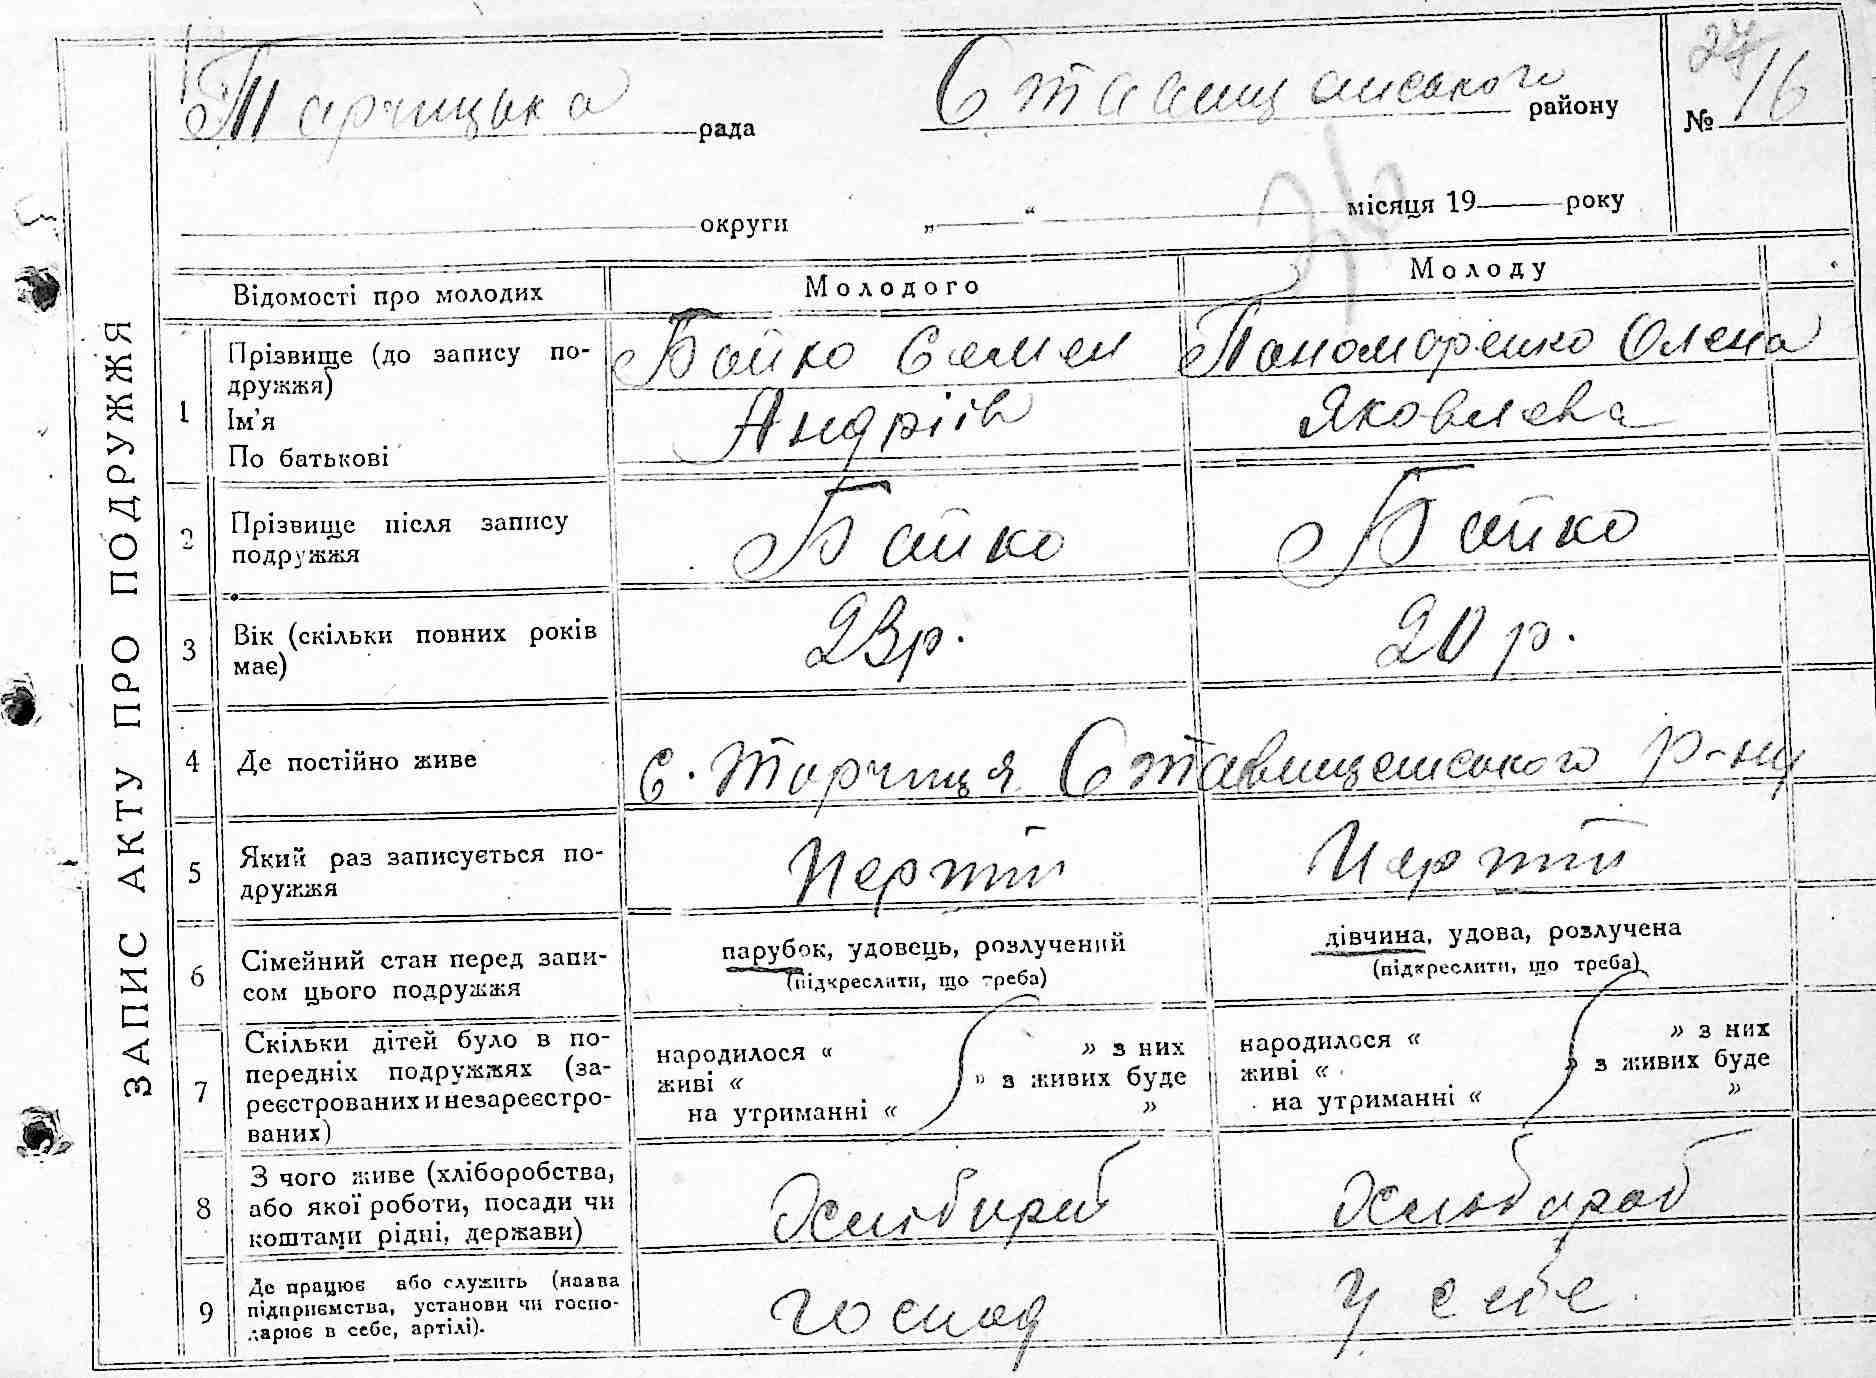 ЗАПИС АКТУ ПРО ПОДРУЖЖЯ
Торчицька рада Ставищанського району № 27/16
округи „ “ місяця 19 року
36
Відомості про молодих Молодого Молоду
1 Прізвище (до запису по-
дружжя)
Ім'я
По батькові
Бойко Семен
Андріїв
Пономаренко Олена
Яковлева
2 Прізвище після запису
подружжя
Бойко
Бойко
3 Вік (скільки повних років
має)
23р.
20 р.
4 Де постійно живе
с. Торчиця Ставищенського р-ну
5 Який раз записується по-
дружжя
6 Сімейний стан перед запи-
сом цього подружжя
парубок, удовець, розлучений
(підкреслити, що треба)
дівчина, удова, розлучена
(підкреслити, що треба)
7 Скільки дітей було в по-
передніх подружжях (за-
реєстрованих и незареєстро-
ваних)
народилося « » з них
живі « » з живих буде
на утриманні « »
народилося « » з них
живі « » з живих буде
на утриманні « »
8 З чого живе (хліборобства,
або якої роботи, посади чи
коштами рідні, держави)
9 Де працює або служить (назва
підприємства, установи чи госпо-
дарює в себе, артілі).
господ
у себе